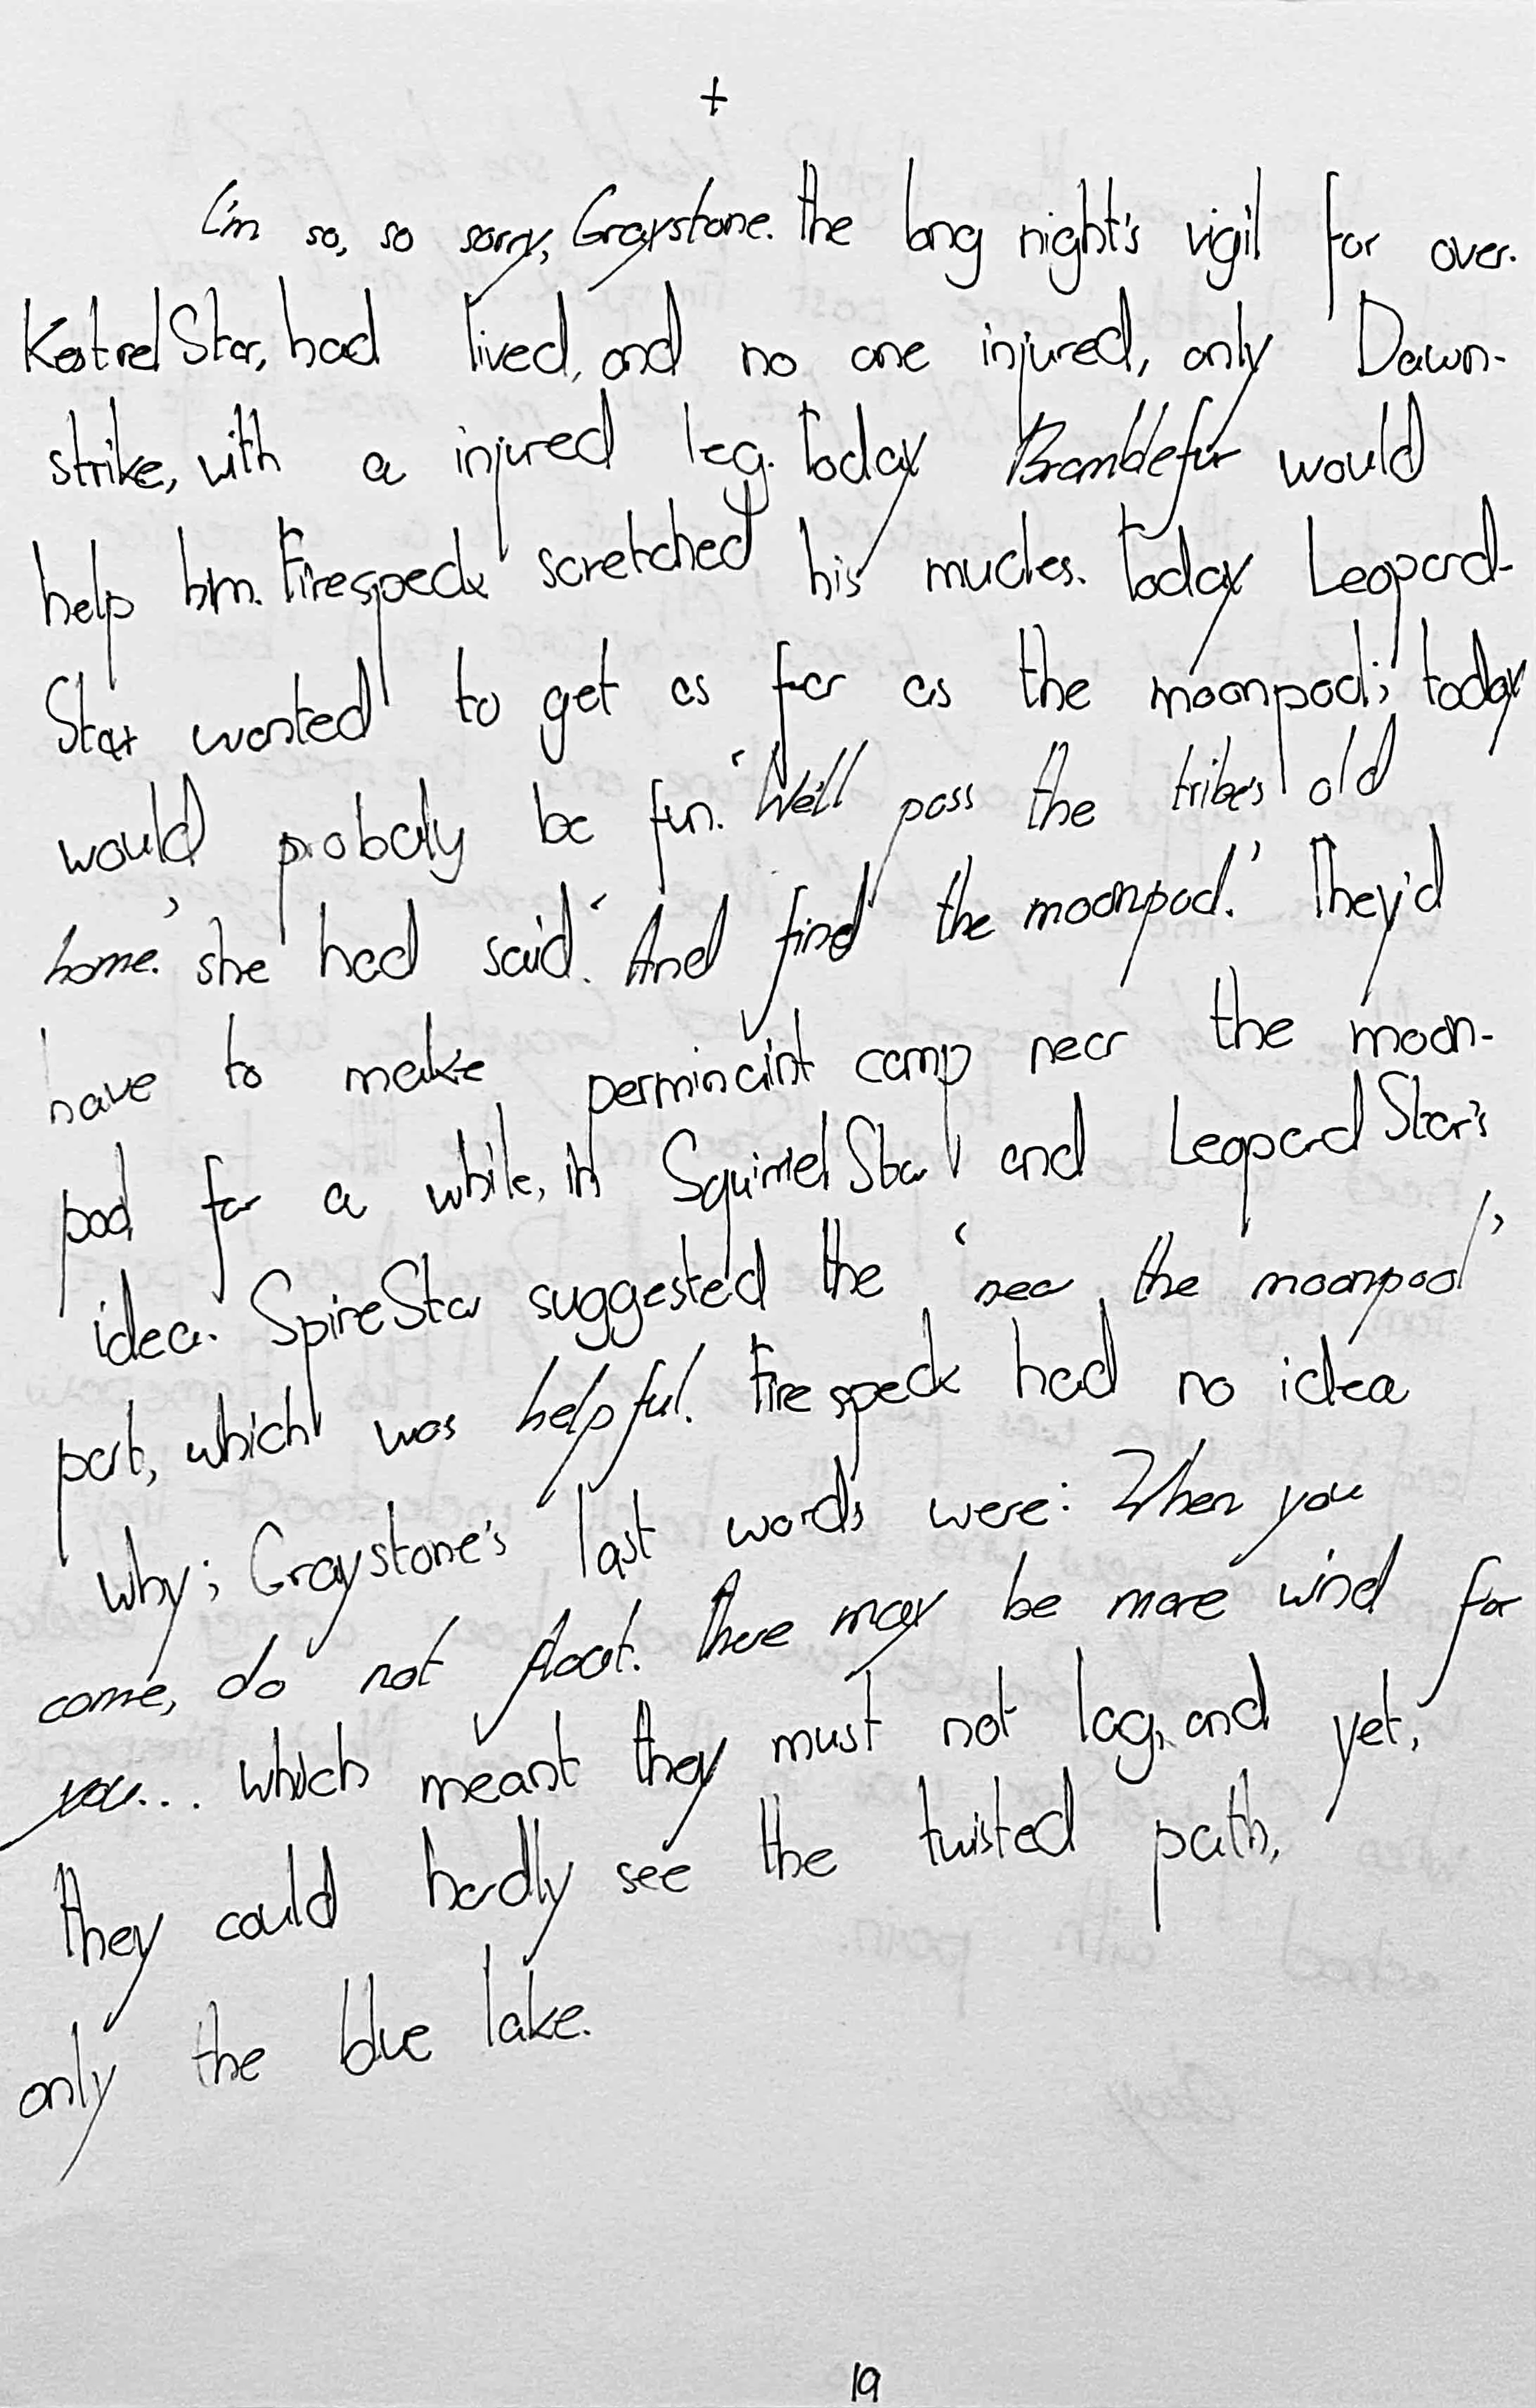 +
I'm so, so sorry, Graystone. The long night's vigil for over.
KestrelStar, had lived, and no one injured, only Dawn-
strike, with a injured leg. Today Bramblefur would
help him. Firespeck scretched his mucles. Today Leopard-
Star wanted to get as far as the moonpool; today
would probaly be fun. 'We'll pass the tribe's old
home.' she had said. 'And find the moonpool.' They'd
have to make perminaint camp near the moon-
pool for a while, in SquirrelStar and LeopardStar's
idea. SpireStar suggested the 'near the moonpool'
part, which was helpful. Firespeck had no idea
why; Graystone's last words were: When you
come, do not float. There may be more wind for
you... which meant they must not lag, and yet,
they could hardly see the twisted path,
only the blue lake.
19